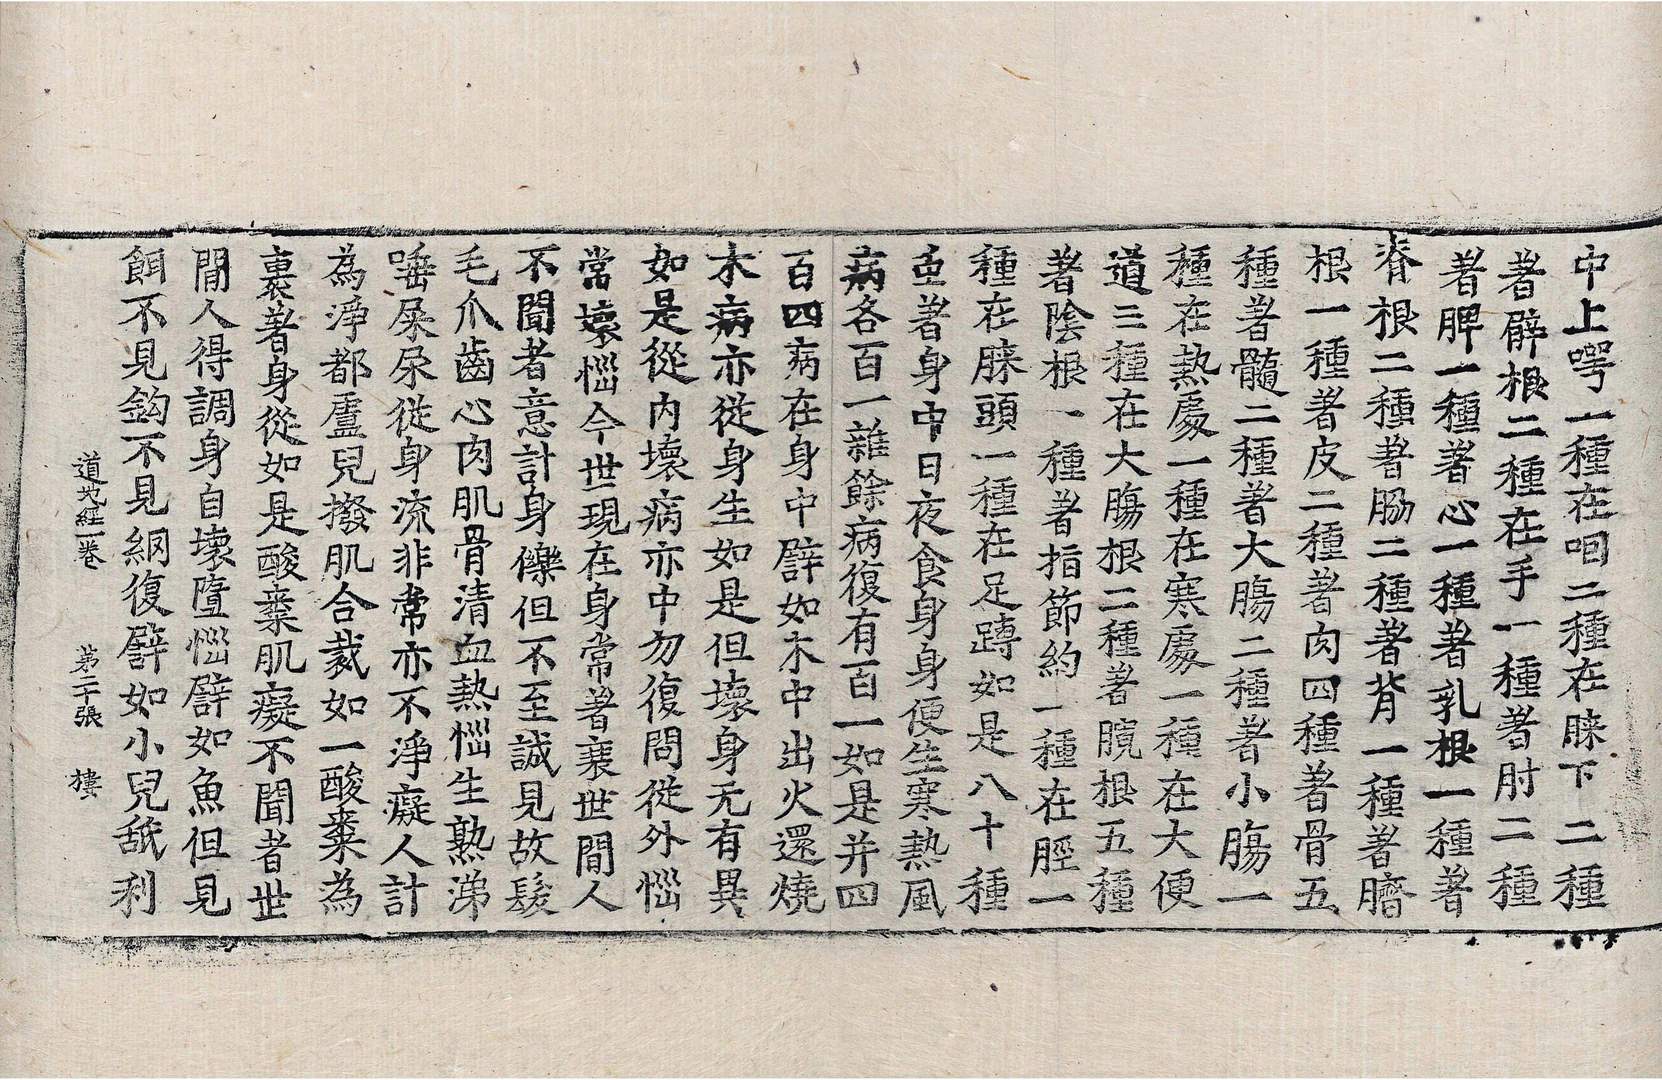 中上㗁一種在咽二種在脥下二種
著臂根二種在手一種著肘二種
著脾一種著心一種著乳根一種著
脊根二種著脇二種著背一種著臍
根一種著皮二種著肉四種著骨五
種著髓二種著大膓二種著小膓一
種在熱處一種在寒處一種在大便
道三種在大膓根二種著臗根五種
著陰根一種著指節約一種在脛一
種在膝頭一種在足蹲如是八十種
䖝著身中日夜食身身便生寒熱風
病各百一雜餘病復有百一如是并四
百四病在身中譬如木中出火還燒
木病亦從身生如是但壞身无有異
如是從內壞病亦中勿復問從外惱
常壞惱今世現在身常著衰世閒人
不聞者意計身儝但不至誠見故髮
毛爪齒心肉肌骨清血熱惱生熟涕
唾屎尿從身流非常亦不淨癡人計
為淨都盧兒撥肌合裁如一酸棗為
裹著身從如是酸棗肌癡不聞者世
閒人得調身自壞墮惱譬如魚但見
餌不見鈎不見網復譬如小兒舐利
道地經一卷 第二十張 樓